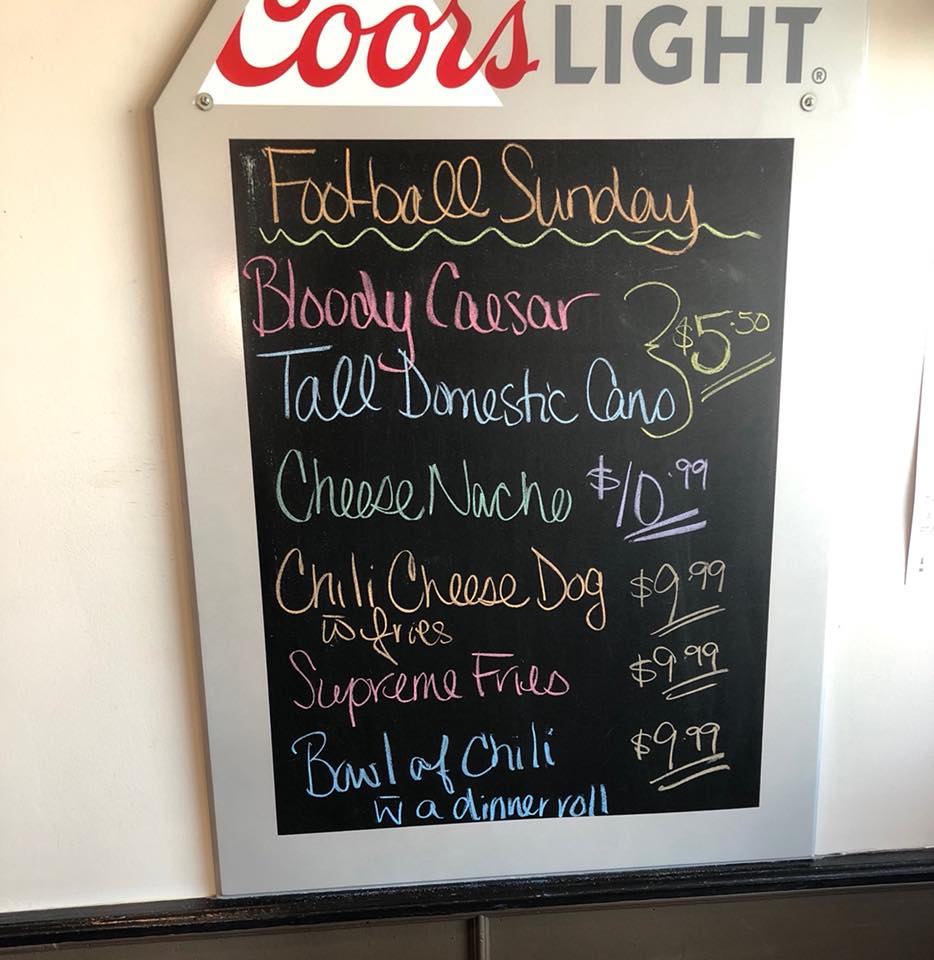 Coors LIGHT®
Football Sunday
Bloody Caesar
$5.50
Tall Domestic Cans
Cheese Nacho $10.99
Chili Cheese Dog $9.99
w̅ fries
Supreme Fries $9.99
Bowl of Chili $9.99
w̅ a dinner roll